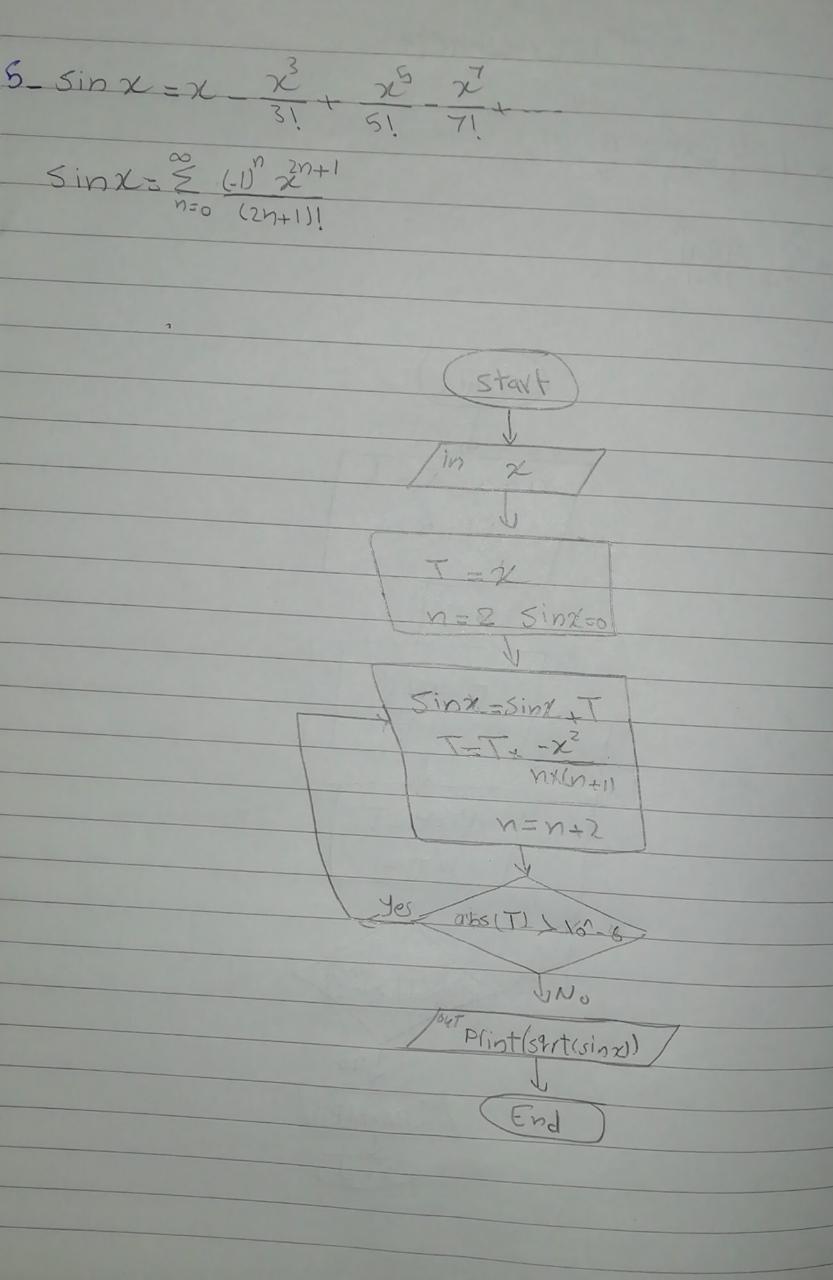 5- sin x = x - x³/3! + x⁵/5! - x⁷/7! + ----
sin x = ∞ Σ n=0 (-1)ⁿ x²ⁿ⁺¹ / (2n+1)!
start
in x
T = x
n = 2 sinx=0
sinx = sinx + T
T = T * -x² / n*(n+1)
n = n+2
abs(T) > 10^-6
Yes
No
out Print(sqrt(sinx))
End